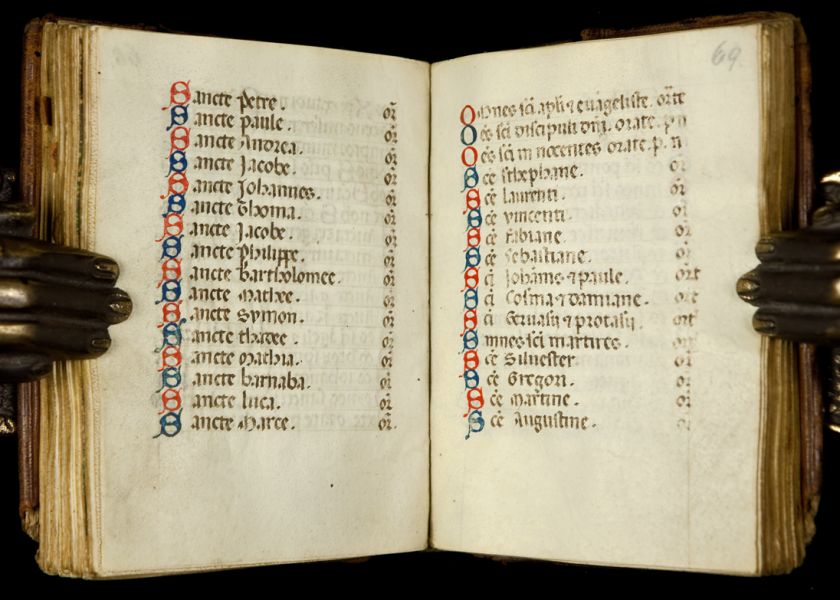 Sancte Petre. or̄
Sancte Paule. or̄
Sancte Andrea. or̄
Sancte Jacobe. or̄
Sancte Johannes. or̄
Sancte Thoma. or̄
Sancte Jacobe. or̄
Sancte Philippe. or̄
Sancte bartholomee. or̄
Sancte Mathee. or̄
Sancte Symon. or̄
Sancte thadee. or̄
Sancte Mathia. or̄
Sancte barnaba. or̄
Sancte luca. or̄
Sancte Marce. or̄
69.
Omnes sc̄i apl̄i ⁊ euāgeliste. or̄te
Oēs sc̄i discipuli dn̄i. orate. p n
Oēs sc̄i innocentes orate. p. n
Scē stephane. or̄
Scē laurenti. or̄
Scē vincenti. or̄
Scē fabiane. or̄
Scē sebastiane. or̄
Sc̄i Johānes ⁊ paule. or̄t
Sc̄i Cosma ⁊ damiane. or̄t
Sc̄i Geruasij ⁊ protasij. or̄t
Omnes sc̄i martires. or̄t
Scē Siluester or̄
Scē Gregori. or̄
Scē martine. or̄
Scē Augustine. or̄